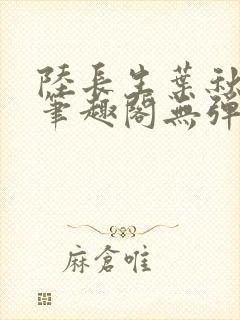 陸長生葉秋
筆趣閣無彈
麻倉唯